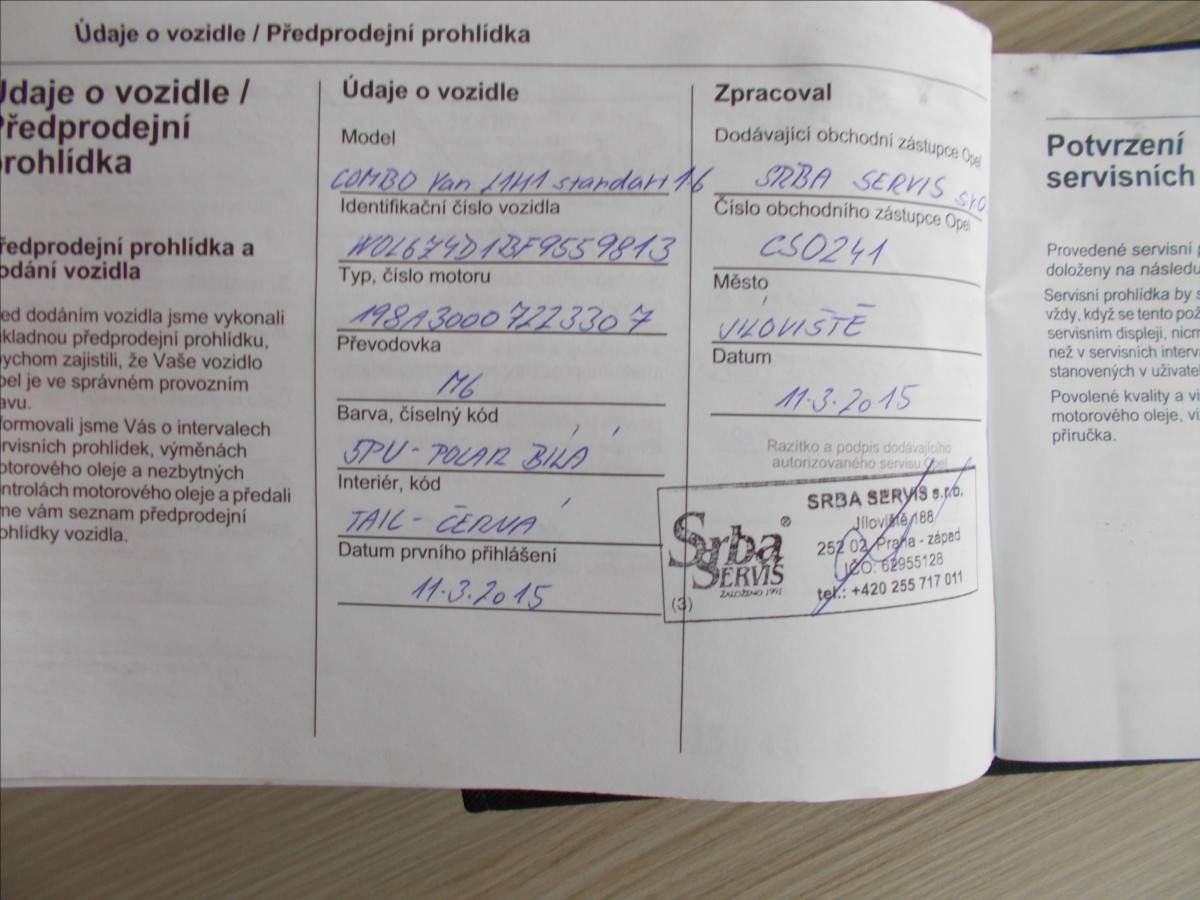 Údaje o vozidle / Předprodejní prohlídka
Údaje o vozidle /
Předprodejní
prohlídka
ředprodejní prohlídka a
odání vozidla
ed dodáním vozidla jsme vykonali
kladnou předprodejní prohlídku,
bychom zajistili, že Vaše vozidlo
pel je ve správném provozním
avu.
formovali jsme Vás o intervalech
rvisních prohlídek, výměnách
otorového oleje a nezbytných
ntrolách motorového oleje a předali
me vám seznam předprodejní
ohlídky vozidla.
Údaje o vozidle
Model
COMBO Van L1H1 standart 1.6
Identifikační číslo vozidla
W0L6Z4D1BF9559813
Typ, číslo motoru
198A3000 7223307
Převodovka
M6
Barva, číselný kód
5PU - POLAR BÍLÁ
Interiér, kód
TAIL - ČERNÁ
Datum prvního přihlášení
11.3.2015
Zpracoval
Dodávající obchodní zástupce Opel
SRBA SERVIS sro
Číslo obchodního zástupce Opel
CS0241
Město
JÍLOVIŠTĚ
Datum
11.3.2015
Razítko a podpis dodávajícího
autorizovaného servisu Opel
Srba ®
SERVIS
ZALOŽENO 1991
SRBA SERVIS s.r.o.
Jíloviště 188
252 02 Praha - západ
IČO: 62955128
tel.: +420 255 717 011
(3)
Potvrzení
servisních
Provedené servisní
doloženy na následu
Servisní prohlídka by s
vždy, když se tento pož
servisním displeji, nicm
než v servisních interva
stanovených v uživatel
Povolené kvality a vi
motorového oleje, v
příručka.